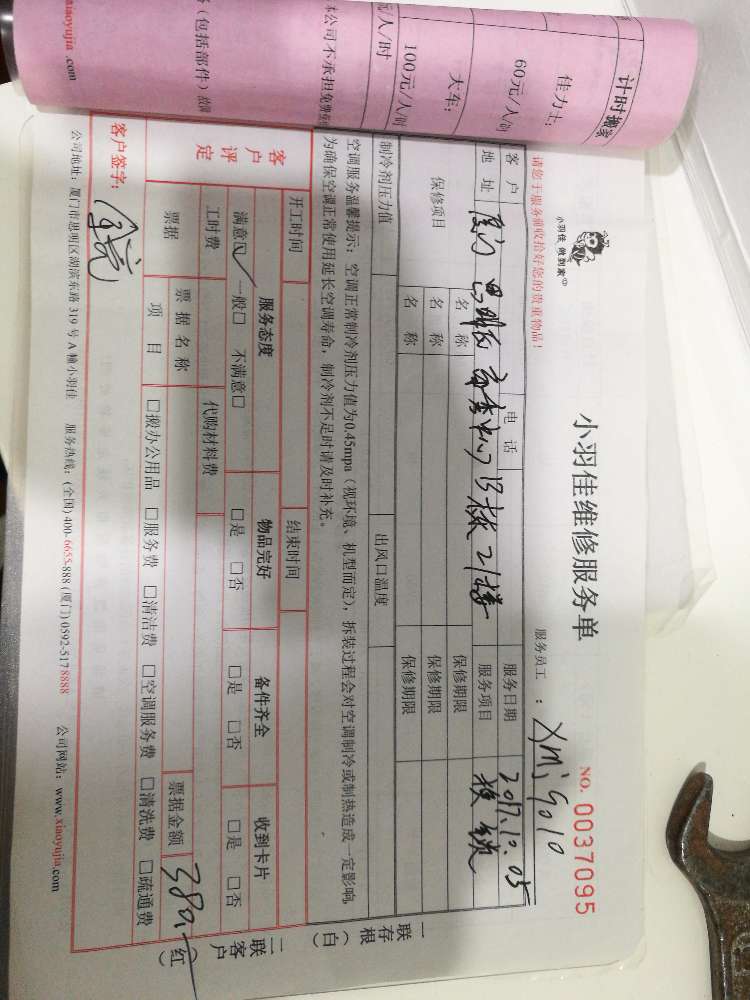 计时搬
佳力士:
60元/人/时
大车:
100元/人/时
元/人/时
本公司不承担免费
(包括部件)
xiaoyujia.com
小羽佳 做到家
小羽佳维修服务单
NO. 0037095
请您于服务前收拾好您的贵重物品!
服务员工:
客户
电话
服务日期
2017.10.05
地址
服务项目
换锁
21楼
保修项目
名称
保修期限
名称
保修期限
名称
保修期限
制冷剂压力值
出风口温度
空调服务温馨提示:空调正常制冷剂压力值为0.45mpa(视环境、机型而定),拆装过程会对空调制冷或制热造成一定影响,
为确保空调正常使用延长空调寿命,制冷剂不足时请及时补充。
开工时间
结束时间
客户评定
服务态度
物品完好
备件齐全
收到卡片
满意☑ 一般□ 不满意□
□是 □否
□是 □否
□是 □否
工时费
代购材料费
票据
票据名称
票据金额
项目
□搬办公用品 □服务费 □清洁费 □空调服务费 □清洗费 □疏通费
客户签字:
公司地址:厦门市思明区湖滨东路319号A幢小羽佳 服务热线:(全国)400-6655-888 (厦门)0592-5178888 公司网站:www.xiaoyujia.com
一联存根(白)
二联客户(红)